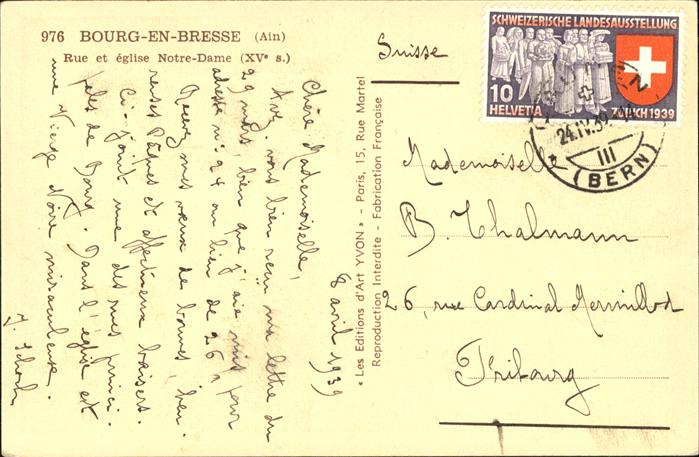 976 BOURG-EN-BRESSE (Ain)
Rue et église Notre-Dame (XVe s.)
8 avril 1939
Chère Mademoiselle,
Avez-vous bien reçu ma lettre du
29 mars, bien que j'aie mis pour
adresse no 24 au lieu de 26,
Recevez mes vœux de bonnes, heu-
reuses Pâques et affectueux baisers.
Ci-joint une des rues princi-
pales de Bourg. Dans l'église est
une Vierge Noire miraculeuse.
« Les Editions d'Art YVON » - Paris, 15, Rue Martel
Reproduction Interdite - Fabrication Française
Suisse
SCHWEIZERISCHE LANDESAUSSTELLUNG
10
HELVETIA
ZÜRICH 1939
24.IV.39
III
(BERN)
Mademoiselle
B. Thalmann
26, rue Cardinal Mermillod
Fribourg